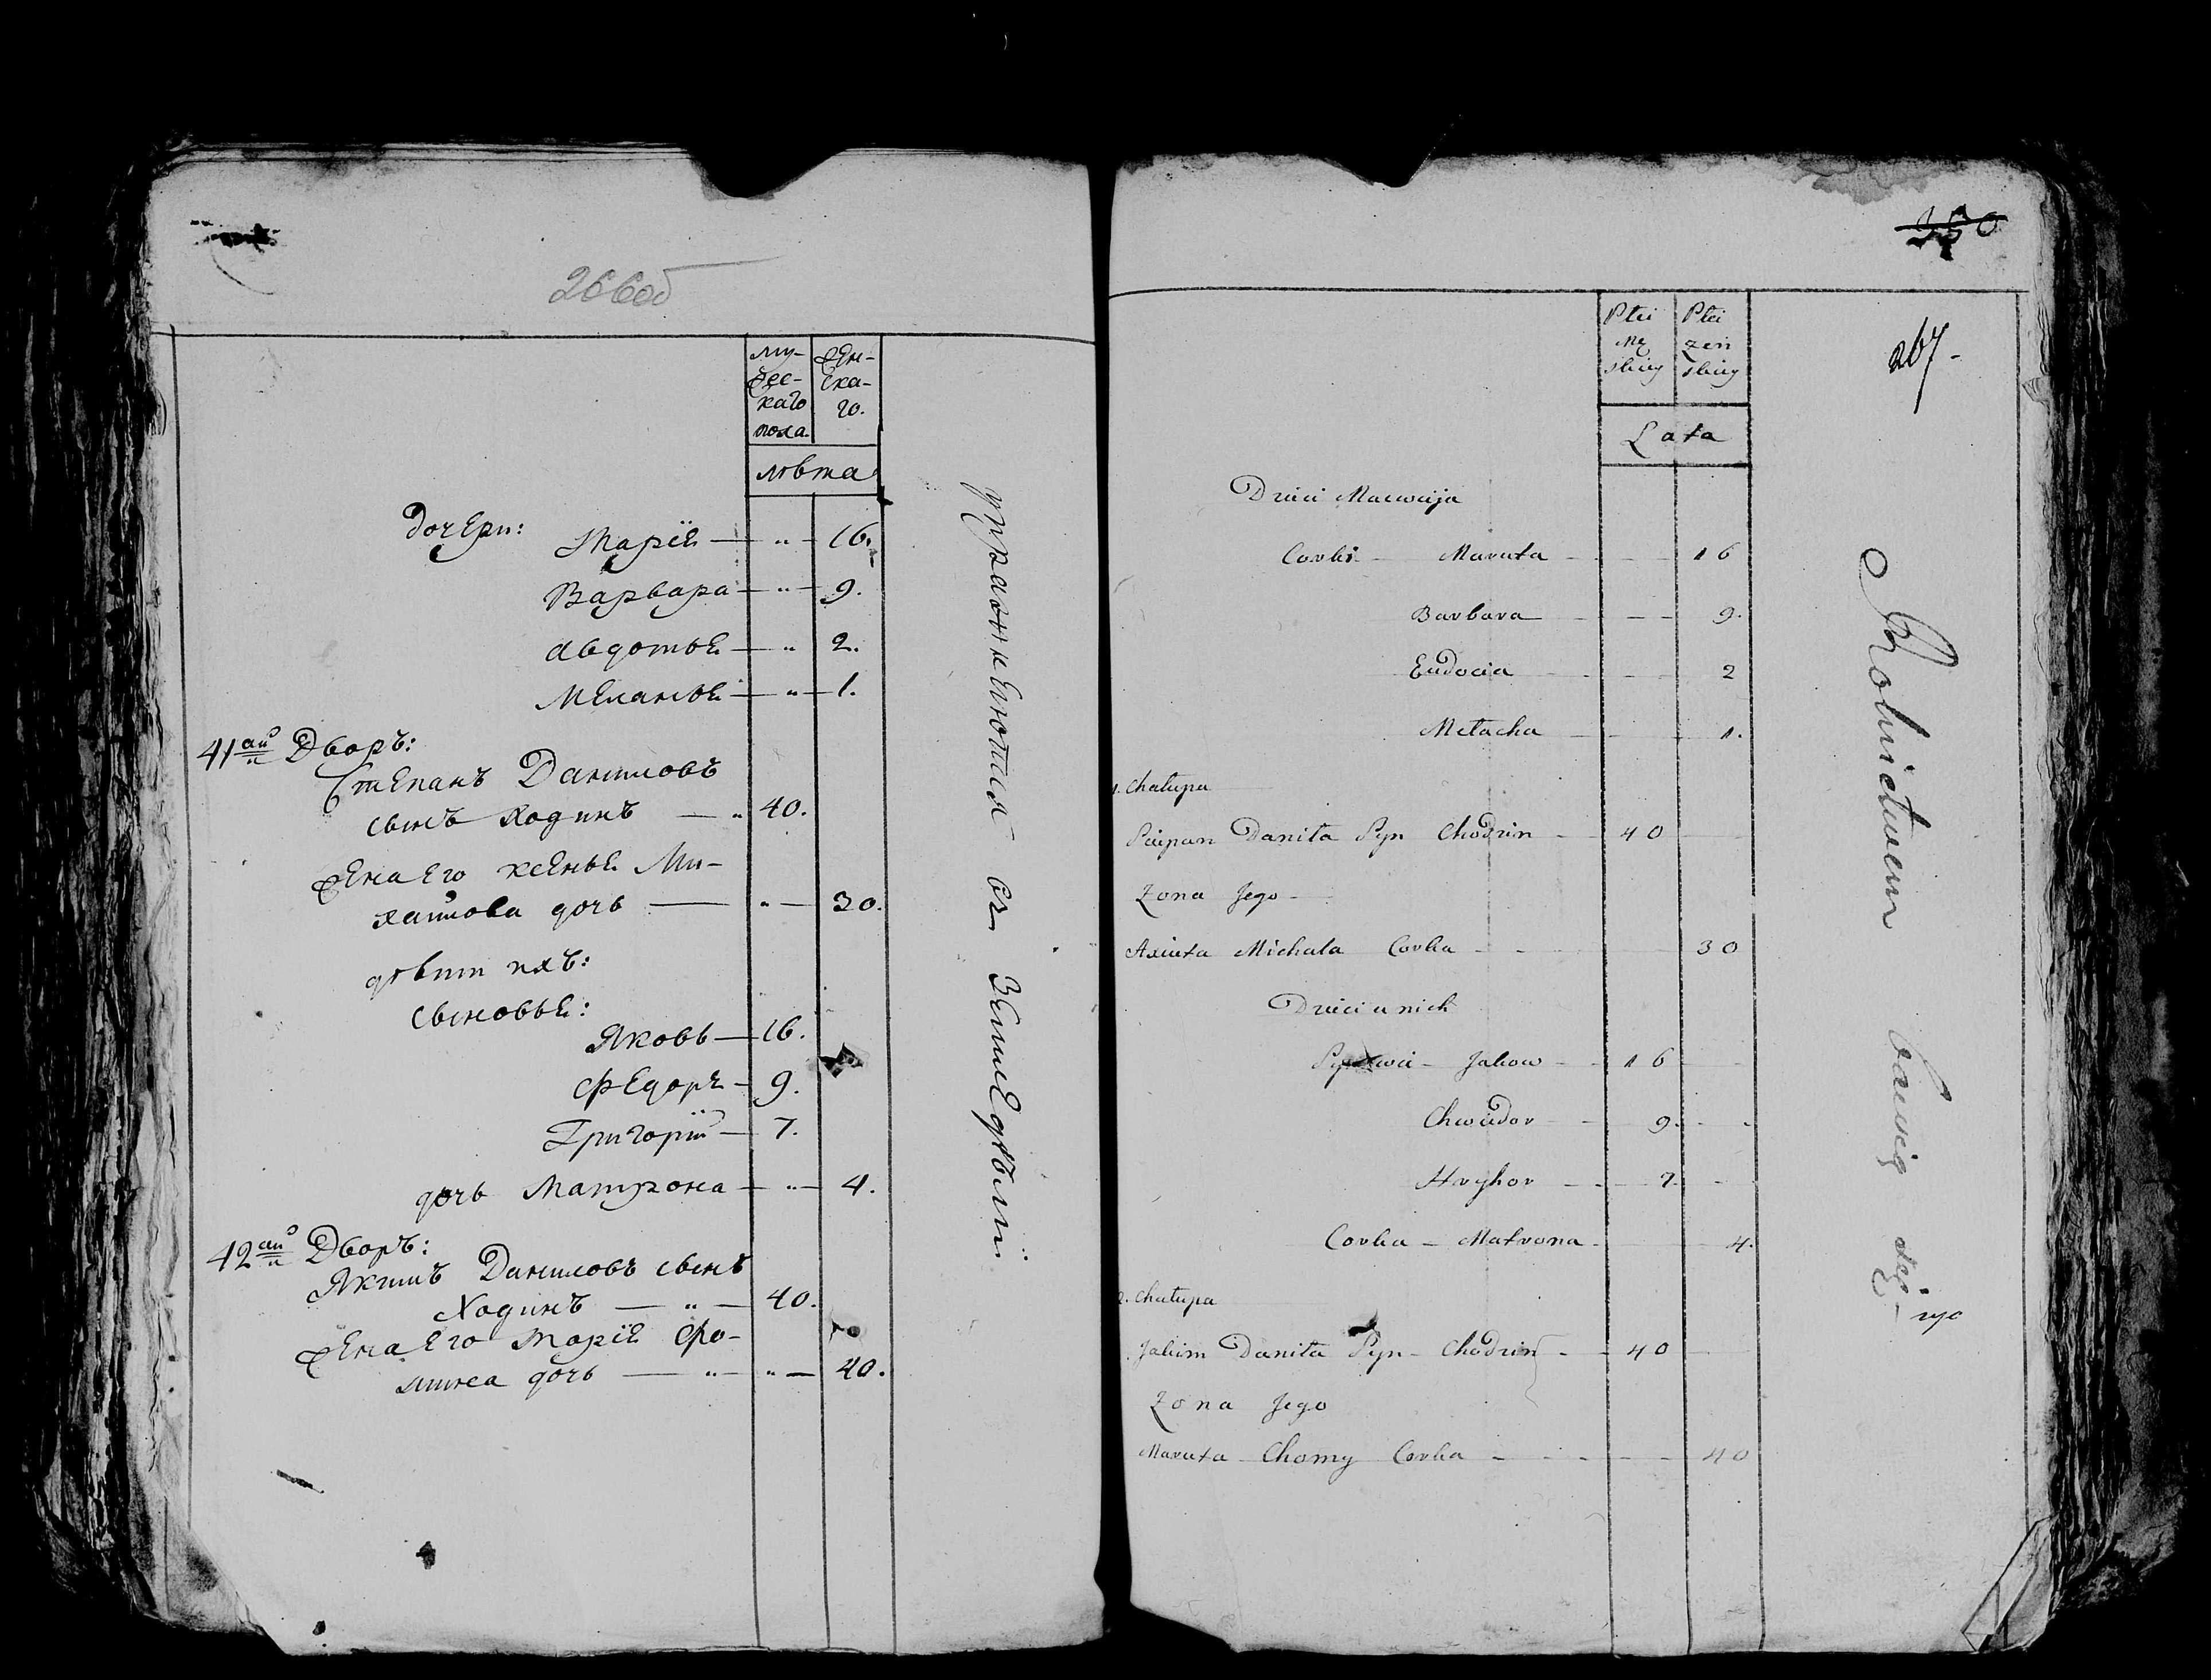 266об
му-
жес-
каго
пола.
жен-
ска-
го.
лѣта
дочери: Марiя — „ — 16.
Варвара — „ — 9.
Авдотья — „ 2.
Меланья — „ — 1.
41ай Дворъ:
Степанъ Даниловъ
сынъ Ходинъ — „ 40.
жена его ксенья Ми-
хайлова дочь — „ — 30.
дѣти ихъ:
сыновья:
Яковъ — 16.
Федоръ — 9.
Григорiй — 7.
дочь Матрона — „ — 4.
42ай Дворъ:
Якимъ Даниловъ сынъ
Ходинъ — „ — 40.
жена его Марiя Фо-
мина дочь — „ — „ — 40.
упражняются въ земледѣлiи.
350
267
Płci
Mę
skiey
Płci
żeń
skiey
Lata
Dzieci Maciveija
Corki — Maruta — 16
Barbara — 9.
Eudocia — 2
Metacha — 1.
1. Chałupa
Sciepan Daniła Syn Chodzin — 40
Żona Jego —
Axiuta Michała Corka — 30
Dzieci u nich
Synowie — Jakow — 16
Chwiedor — 9.
Hryhor — 7.
Corka — Matrona — 4.
2. Chałupa
Jakim Daniła Syn — Chodzin — 40
Żona Jego
Maruta Chomy Corka — 40
Rolnictwem bawią się